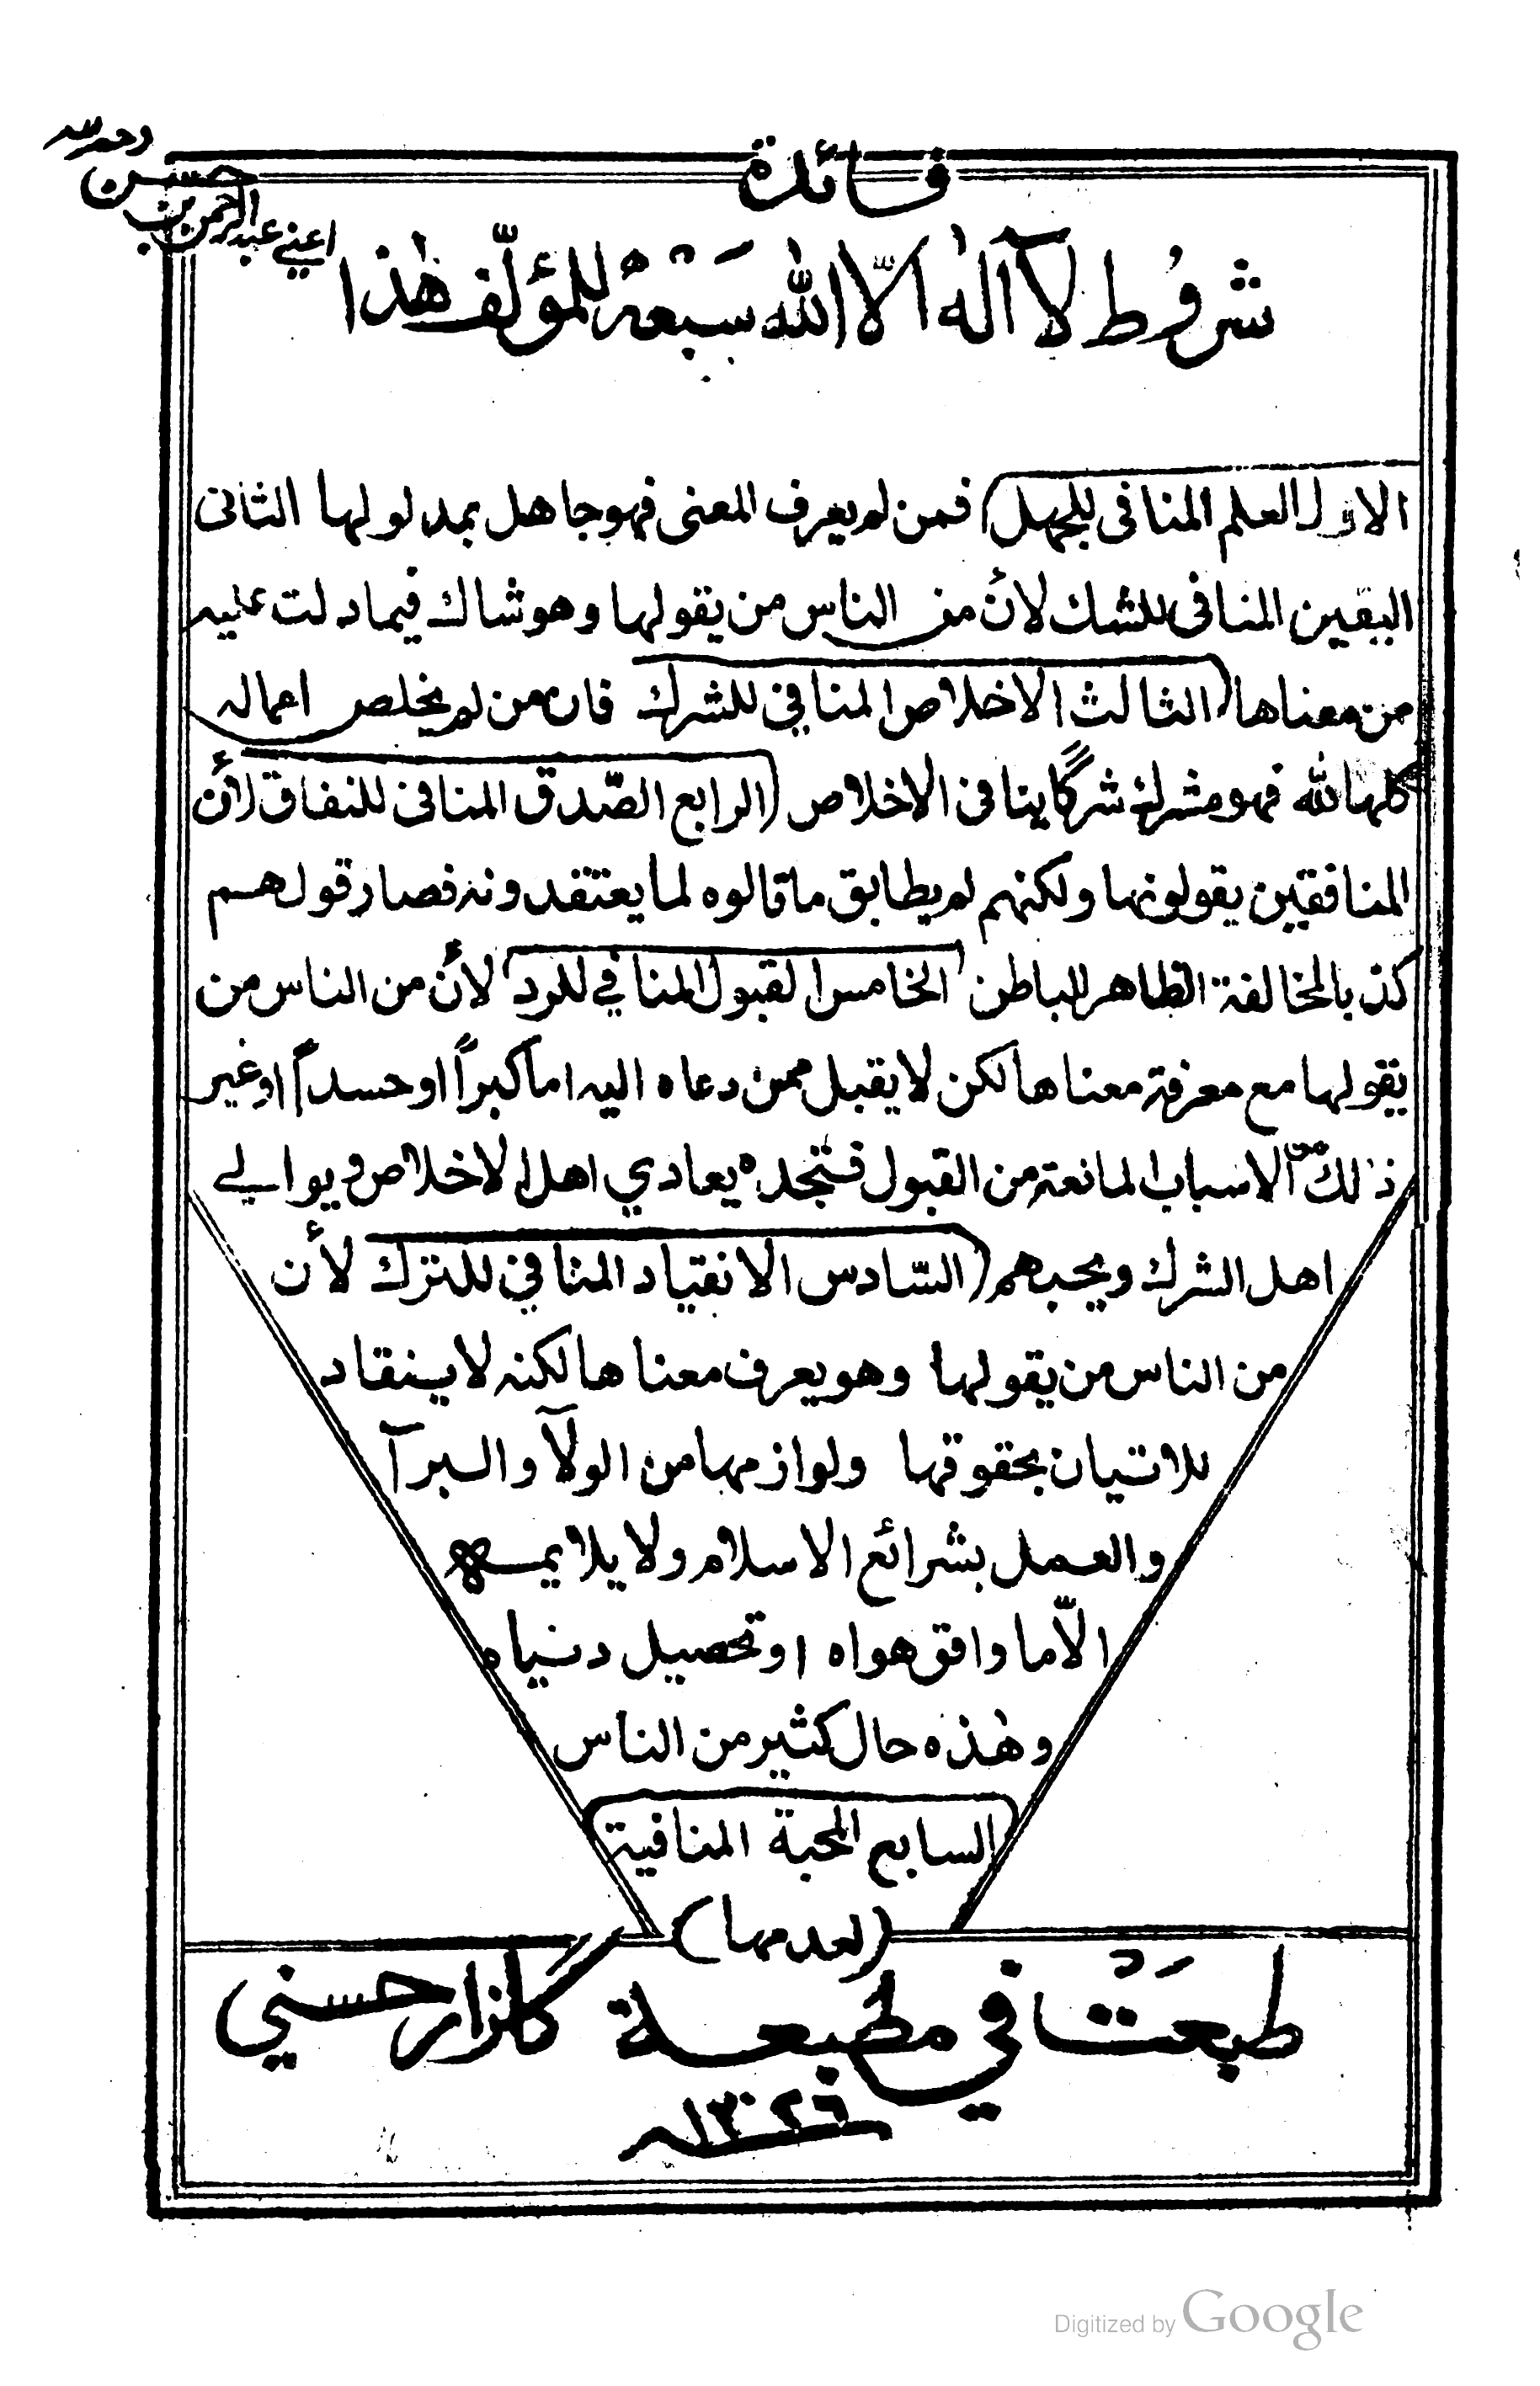 فائدة
شروط لآ اله الّا الله سَبْعة للمؤلّف هٰذا
اعني عبد الرحمن بن
حسن
رحمه الله
الاول العلم المنافى للجهل) فمن لم يعرف المعنى فهو جاهل بمدلولها الثانى
اليقين المنافى للشك لأن من الناس من يقولها وهو شاك فيما دلت عليه
من معناها (الثالث الاخلاص المنافي للشرك فان من لم يخلص اعماله
كلها لله فهو مشرك شركًا ينافى الاخلاص (الرابع الصّدق المنافى للنفاق لأن
المنافقين يقولونها ولكنهم لم يطابق ما قالوه لما يعتقدونه فصار قولهم
كذبا لمخالفة الظاهر للباطن (الخامس القبول المنافي للرد) لأن من الناس من
يقولها مع معرفة معناها لكن لا يقبل ممن دعاه اليه اما كبراً او حسداً او غير
ذلك من الاسباب المانعة من القبول فتجده يعادي اهل الاخلاص ويوالي
اهل الشرك ويحبهم (السّادس الانقياد المنافي للترك لأن
من الناس من يقولها وهو يعرف معناها لكنه لا ينقاد
للاتيان بحقوقها ولوازمها من الولآ والبرآ
والعمل بشرائع الاسلام ولا يلايمه
الّا ما وافق هواه او تحصيل دنياه
وهٰذه حال كثير من الناس
(السابع المحبة المنافية
(لعدمها)
طبعَتْ في مطبعة گلزار حسني
١٣٢٦
Digitized by Google